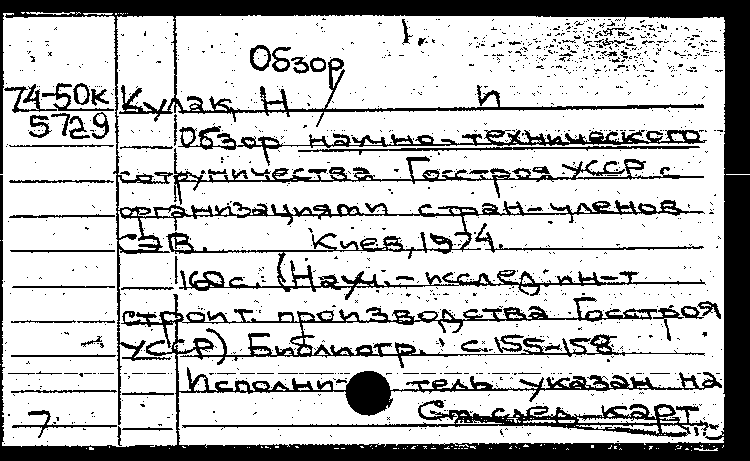 1.
Обзор
74-50к Кулак, Н / и
5729 Обзор научно-технического
сотрудничества Госстроя УССР с
организациями стран-членов
СЭВ. Киев, 1974.
160 с. (Науч.-исслед. ин-т
строит. производства Госстроя
УССР). Библиогр.: с. 155-158
Исполнитель указан на
См. след. карт.
7